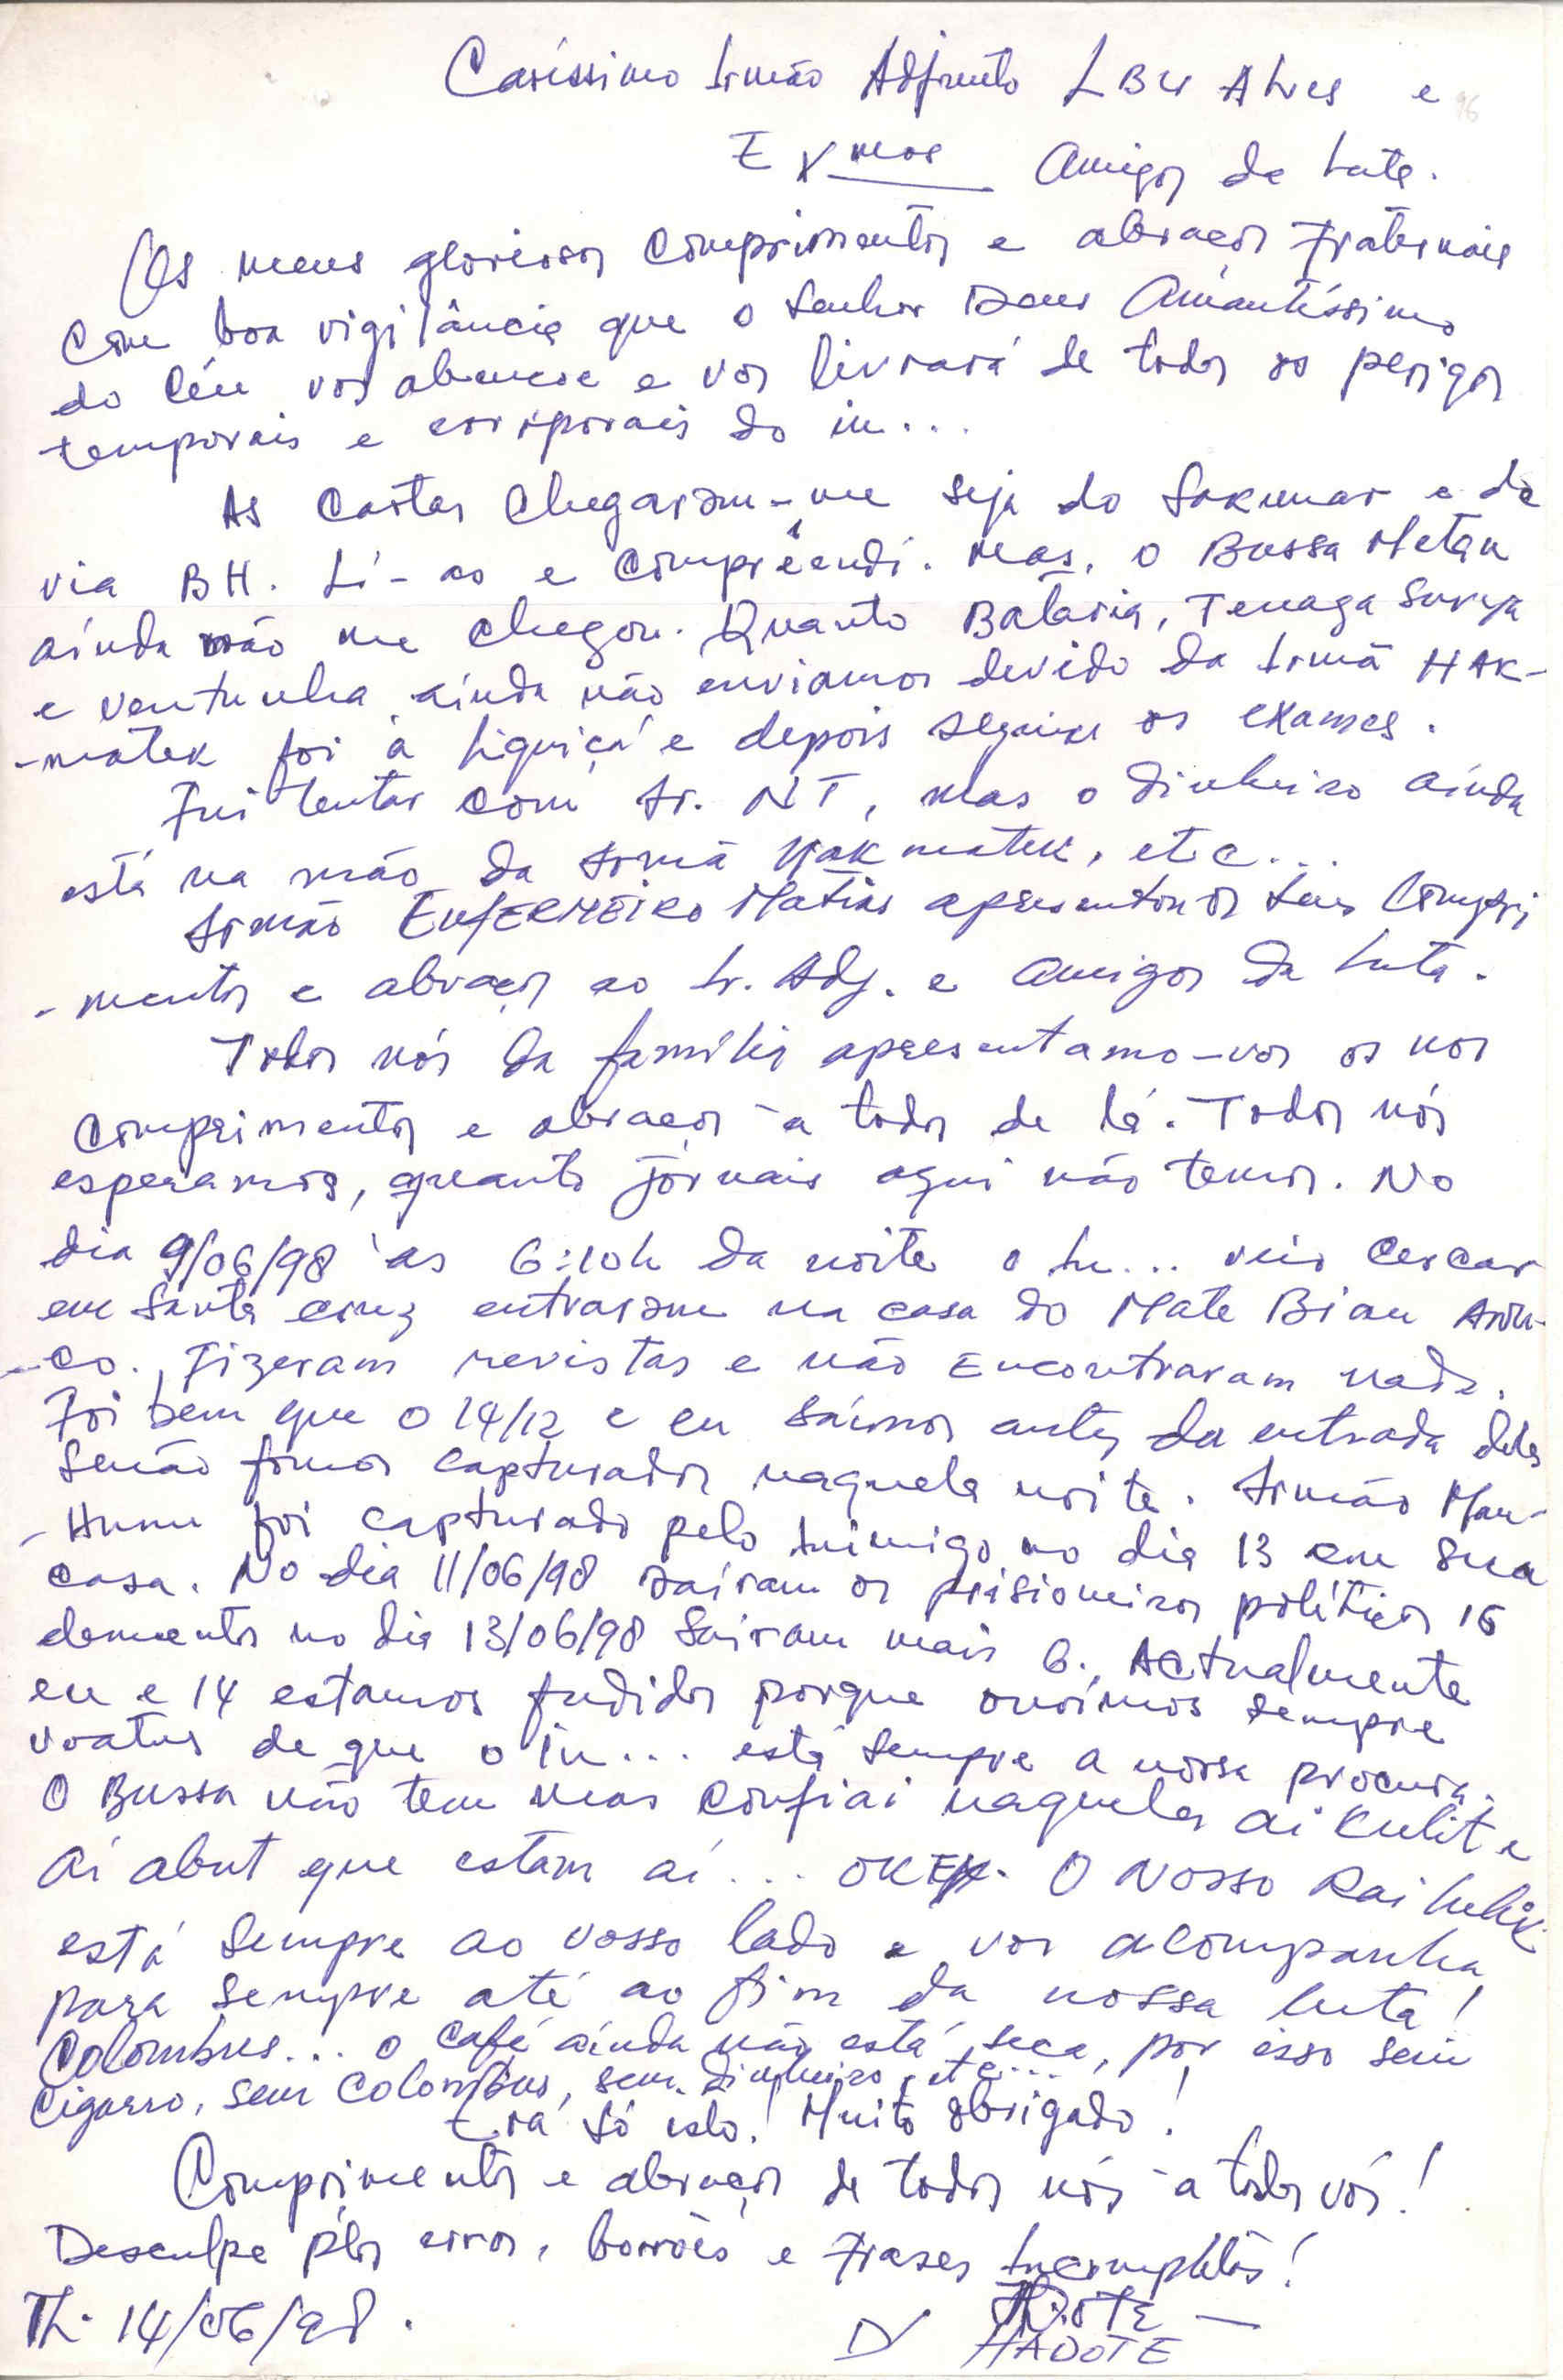 Caríssimo Irmão Adjunto LBU Alves e
Exmos Amigos da Luta.
Os meus gloriosos comprimentos e abraços fraternais
com boa vigilância que o Senhor Deus Amantíssimo
do Céu vos abençoe e vos livrará de todos os perigos
temporais e corporais do in...
As cartas chegaram-me seja do Sakunar e de
via BH. Li-as e comprêendi. Mas, o Bussa Metan
ainda não me chegou. Quanto Bataria, Tenaga Surya
e ventunha ainda não enviamos devido da Irmã HAK-
-matek foi à Liquiçá e depois seguir os exames.
Fui tentar com Sr. NT, mas o dinheiro ainda
está na mão da Irmã Hakmatek, etc...
Irmão ENFERMEIRO Matias apresentou os seus Compri
-mentos e abraços ao Ir. Adj. e Amigos da Luta.
Todos nós da família apresentamo-vos os nos
comprimentos e abraços à todos de lá. Todos nós
esperamos, quanto jornais aqui não temos. No
dia 9/06/98 às 6:10h da noite o In... veio cercar
em Santa Cruz entraram na casa do Mate Bian Andu-
-co. Fizeram revistas e não Encontraram nada.
Foi bem que o 14/12 e eu saímos antes da entrada deles
senão fomos capturados naquela noite. Irmão Mau-
-Hunu foi capturado pelo Inimigo no dia 13 em sua
casa. No dia 11/06/98 saíram os prisioneiros políticos 15
elementos no dia 13/06/98 Sairam mais 6. Actualmente
eu e 14 estamos fudidos porque ouvimos sempre
voatus de que o in... está sempre a nossa procura.
O Bussa não tem mas confiai naqueles ai kulit e
Ai abut que estam aí... OKEY. O Nosso Rai Lulik
está sempre ao vosso lado e vos acompanha
para sempre até ao fim da nossa luta!
Colombus... o café ainda não está seca, por isso sem
cigarro, sem Colombus, sem dinheiro, etc...
Era só isto! Muito obrigado!
Comprimentos e abraços de todos nós à todos vós!
Desculpe plos erros, borrões e frases Incompletas!
Th. 14/06/98.
HADOTE